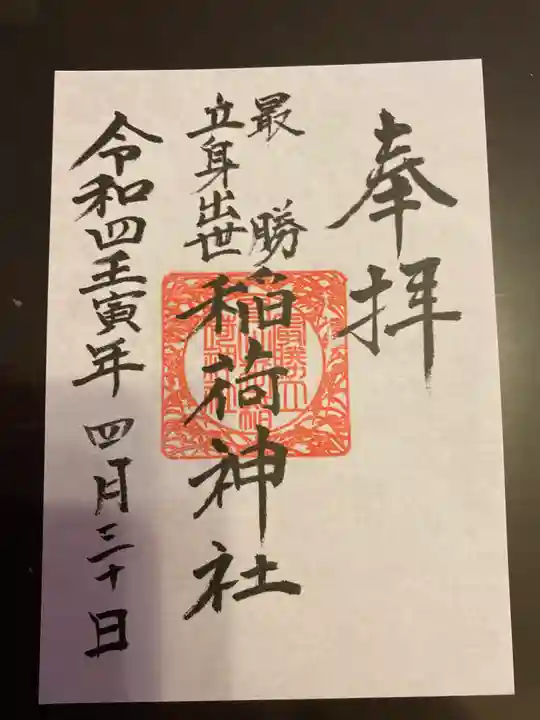 奉拝
最勝
立身出世
稲荷神社
令和四壬寅年四月三十日